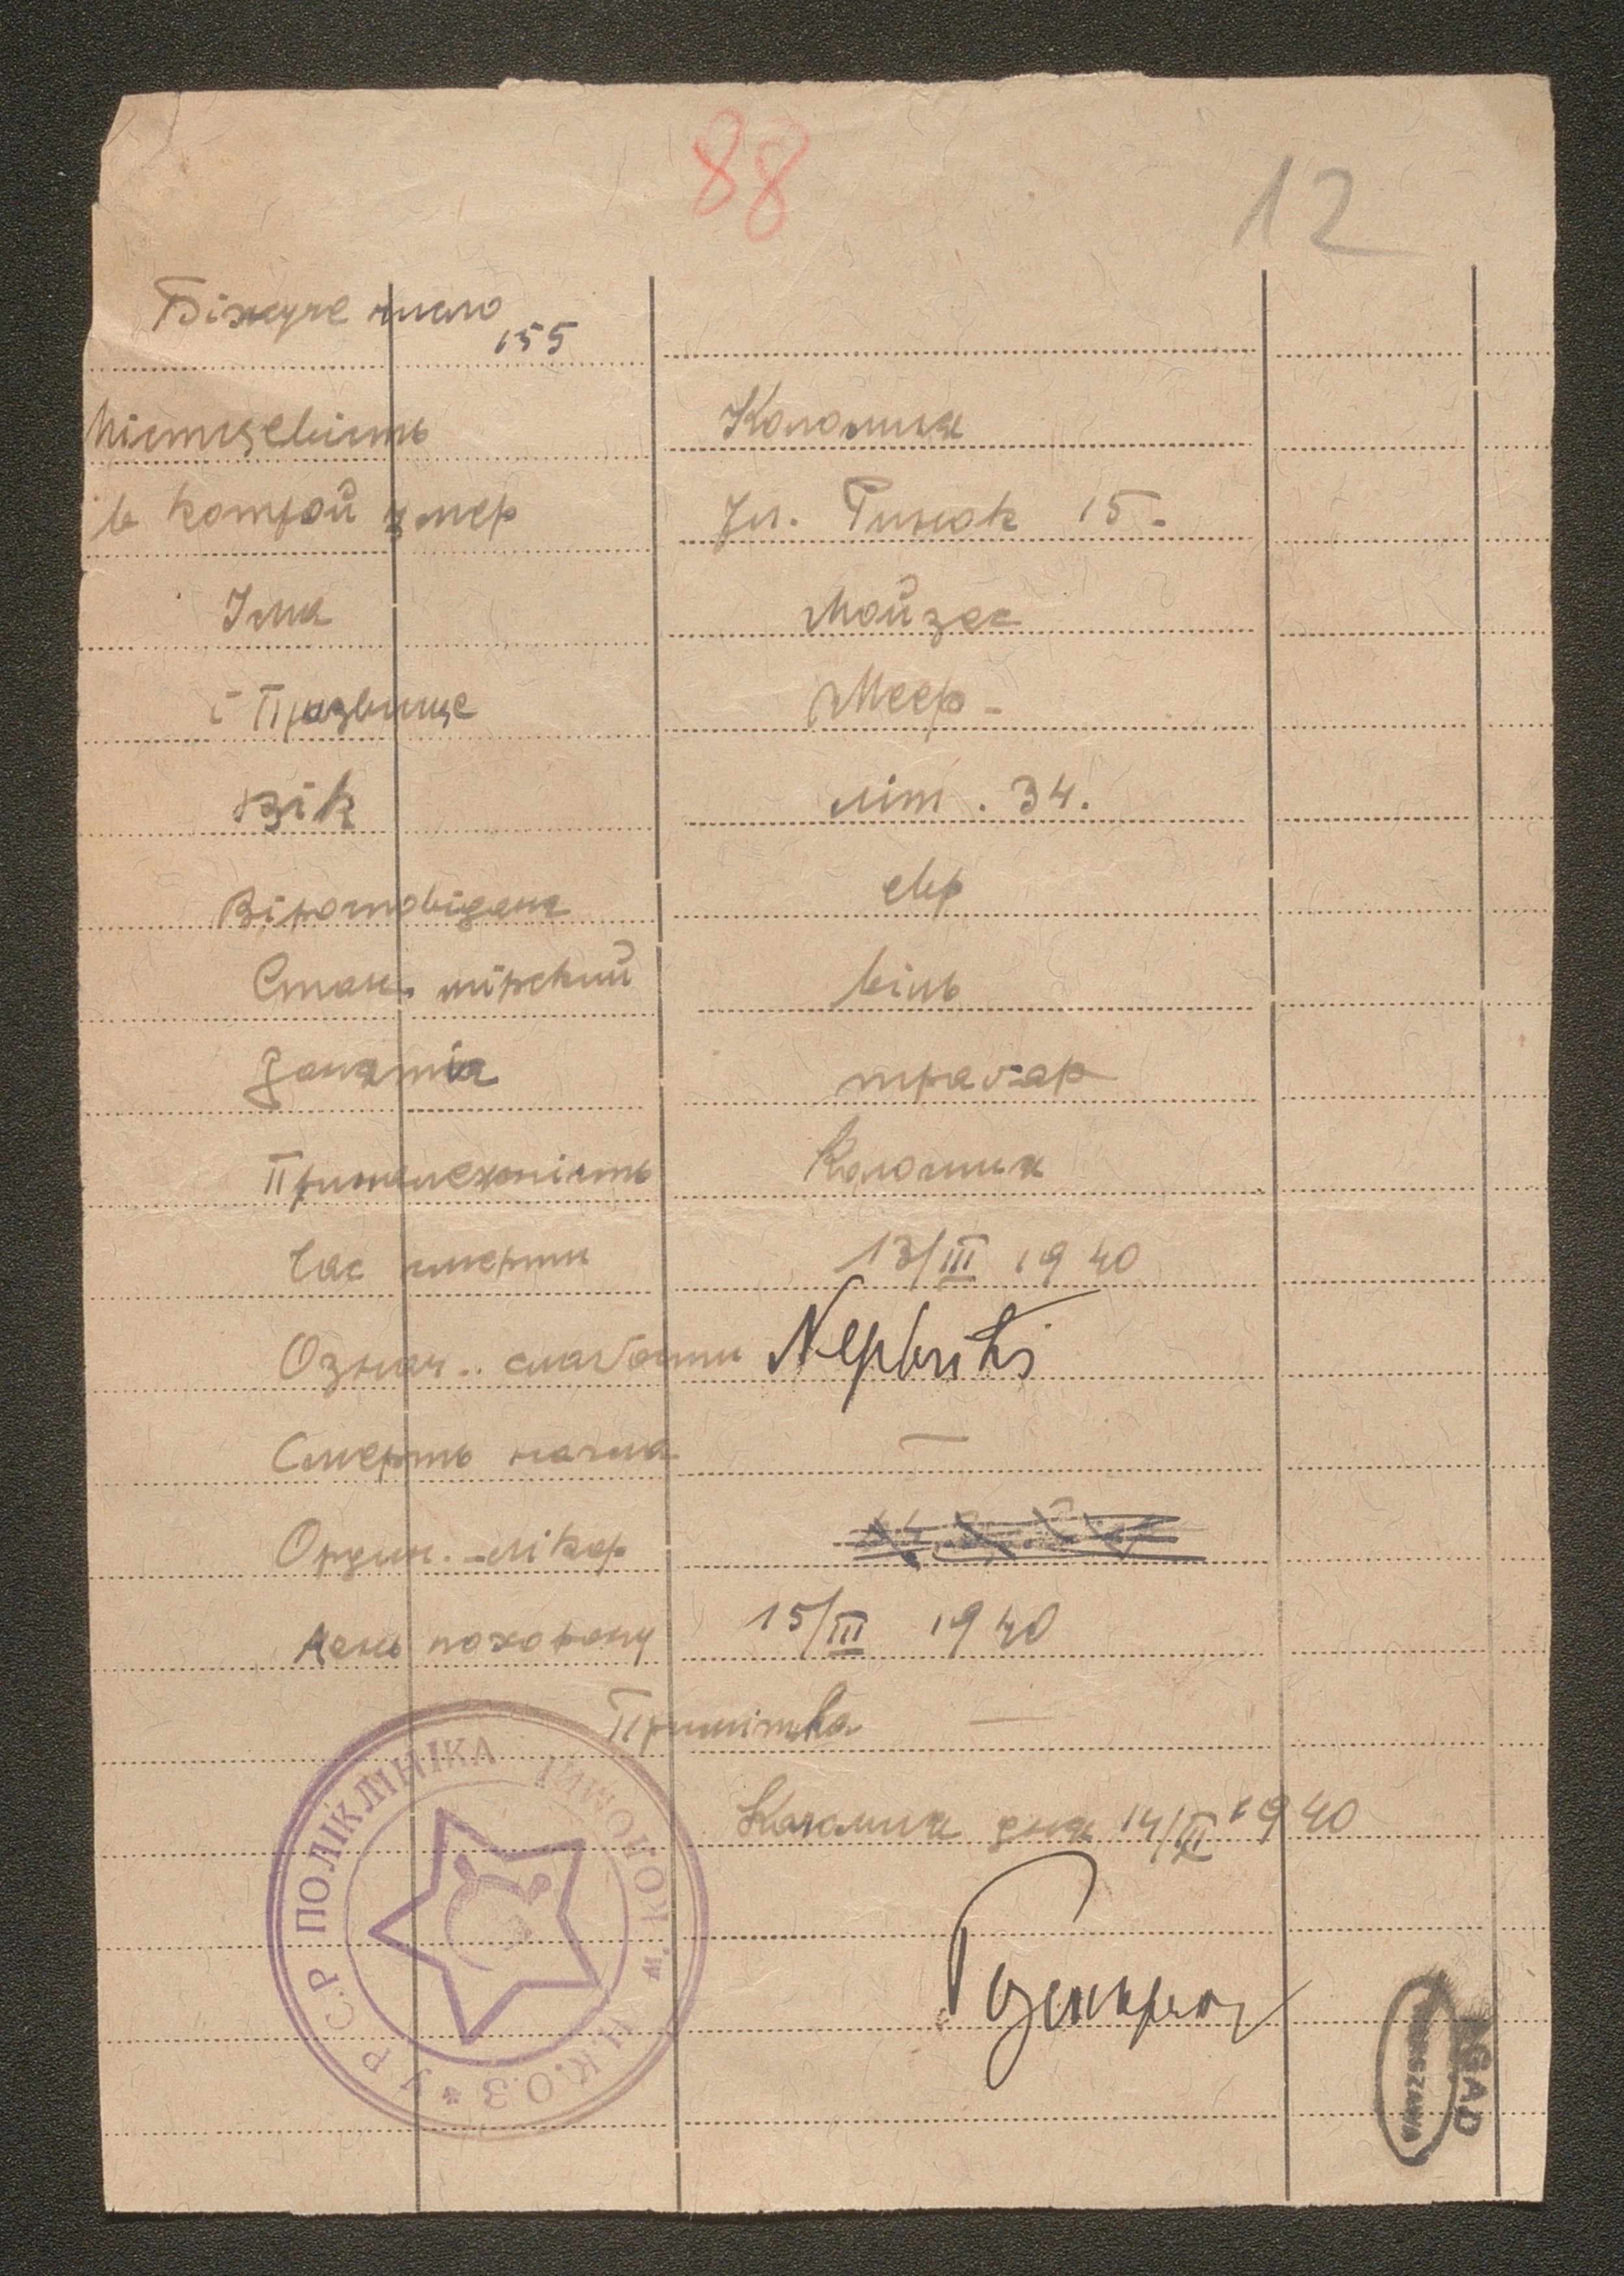 88
12
Біжуче число
155
Містцевість Коломия
в котрой умер Ул. Ринок 15-
Імя Мойзес
і Призвище Меер-
Вік літ. 34.
Віроисповідане евр
Стан мірский віль
Заняття
Приналежність Коломия
Час смерти 13/III 1940
Означ.. слабости Nephritis
Смерть нагла —
Ордин.-лікар
День похорону 15/III 1940
Примітка —
Коломия дня 14/III 1940
У.Р.С.Р ПОЛІКЛІНІКА
Н.К.О.З *
AGAD
WARSZAWA